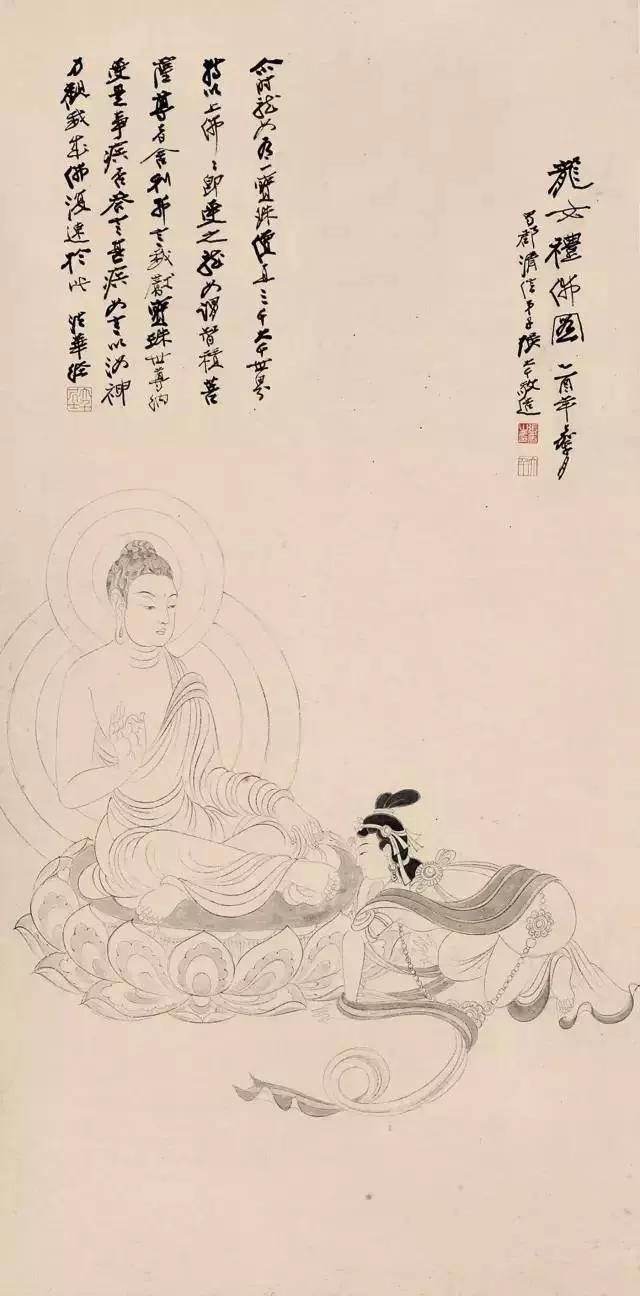 龍女禮佛圖 乙酉年 月
蜀郡清信弟子張大千敬造
尒時龍女有一寶珠價直三千大千世界
持以上佛々即受之龍女謂智積菩
薩尊者舍利弗言我獻寶珠世尊納
受是事疾否答言甚疾女言以汝神
力觀我成佛復速於此 法華經